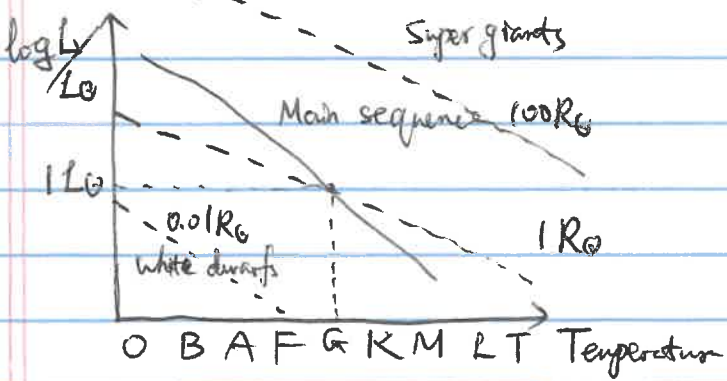 Super giants
log L/L⊙
Main sequence 100R⊙
1L⊙
0.01R⊙
1R⊙
White dwarfs
O B A F G K M L T Temperature